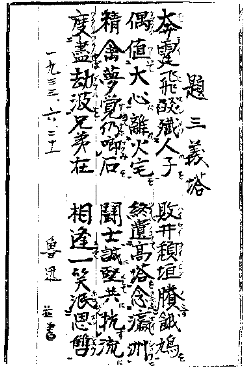 題三義塔
奔霆飛焰殲人子 敗井頹垣賸餓鳩
偶值大心離火宅 終遺高塔念瀛洲
精禽夢覺仍啣石 鬪士誠堅共抗流
度盡劫波兄弟在 相逢一笑泯恩讐
一九三三、六、二十一 魯迅 並書